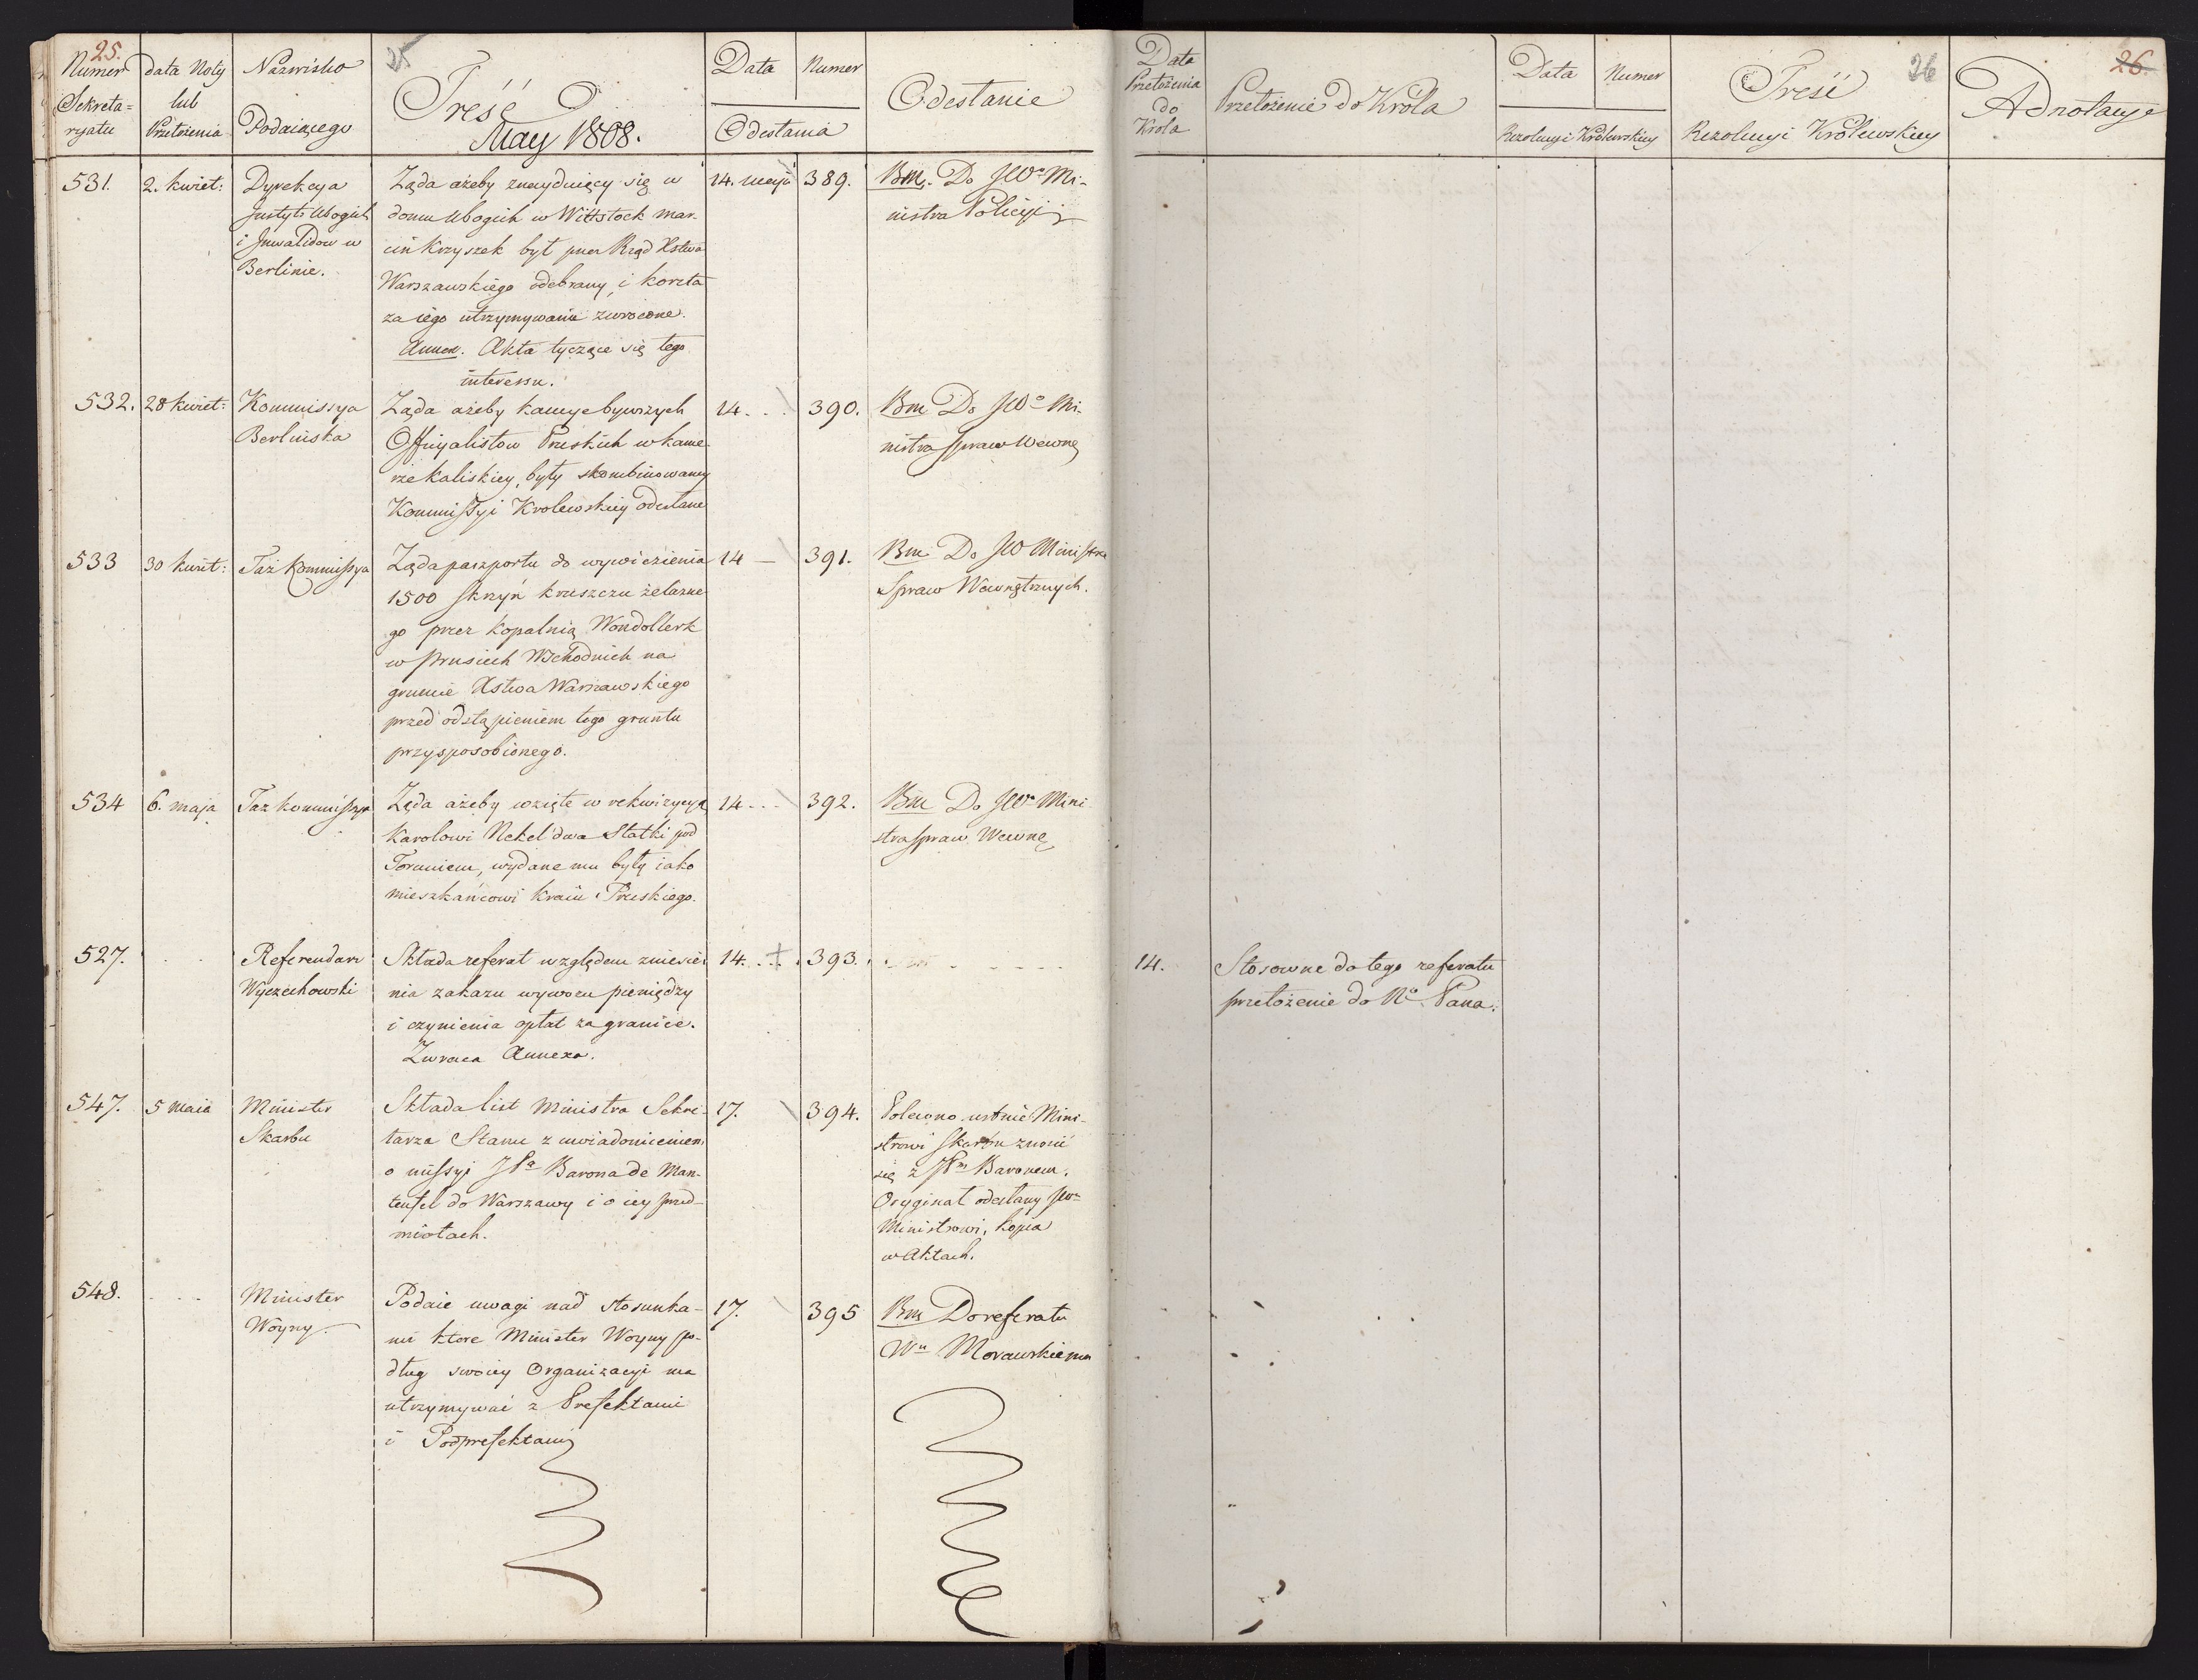 25.
25
Numer Sekretaryatu
data Noty lub Przełożenia
Nazwisko Podaiącego
Treść
May 1808.
Data Numer
Odesłania
Odesłanie
531.
2. kwiet:
Dyrekcya
Instyt: Ubogich
i Inwalidow w
Berlinie.
Ząda ażeby znayduiący się w
domu Ubogich w Wittstock mar-
cin Krzyszek był przez Rząd Xstwa
Warszawskiego odebrany, i koszta
za iego utrzymywanie zwrocone.
Annex. Akta tyczące się tego
interessu.
14. maja
389.
Bm. Do JWo Mi-
nistra Policyi
532.
28 kwiet:
Kommissya
Berlinska
Ząda ażeby kaucye bywszych
Officyalistow Pruskich w kame-
rze kaliskiey, były skombinowaney
Kommissyi Krolewskiey odesłane
14. . .
390.
Bm Do JWo Mi-
nistra Spraw Wewnę
533
30 kwiet:
Taż Kommissya
Ząda paszportu do wywiezienia
1500 skrzyń kruszczu żelazne-
go przez kopalnią Wondollerk
w Prusiech Wschodnich na
gruncie Xstwa Warszawskiego
przed odstąpieniem tego gruntu
przysposobionego.
14 —
391.
Bm Do JW Ministra
Spraw Wewnętrznych.
534
6. maja
Taz kommissya
Ząda ażeby wzięte w rekwizycyą
Karolowi Nekel dwa Statki pod
Toruniem, wydane mu były iako
mieszkańcowi kraiu Pruskiego.
14 . . .
392.
Bm Do JWo Mini-
stra Spraw Wewnę
527.
. .
Referendarz
Wyczechowski
Składa referat względem zniesie-
nia zakazu wywozu pieniędzy
i czynienia opłat za granicę.
Zwraca Annexa.
14. . .
393.
547.
5 maia
Minister
Skarbu
Składa list Ministra Sekre-
tarza Stanu z uwiadomieniem
o missyi JPa Barona de Man-
teufel do Warszawy i o iey przed-
miotach.
17.
394.
Polecono ustnie Mini-
strowi Skarbu znosić
się z JPm Baronem.
Oryginał odesłany JWu
Ministrowi, kopia
w Aktach.
548.
. . .
Minister
Woyny
Podaie uwagi nad stosunka-
mi ktore Minister Woyny po-
dług swoiey Organizacyi ma
utrzymywać z Prefektami
i Podprefektami
17.
395
Bm Do referatu
Wu Morawskiemu
26
26.
Data Przełożenia do Krola
Przełożenie do Króla
Data Numer
Rezolucyi Królewskiey
Treść
Rezolucyi Królewskiey
Adnotacye
14.
Stosowne do tego referatu
przełożenie do No Pana.